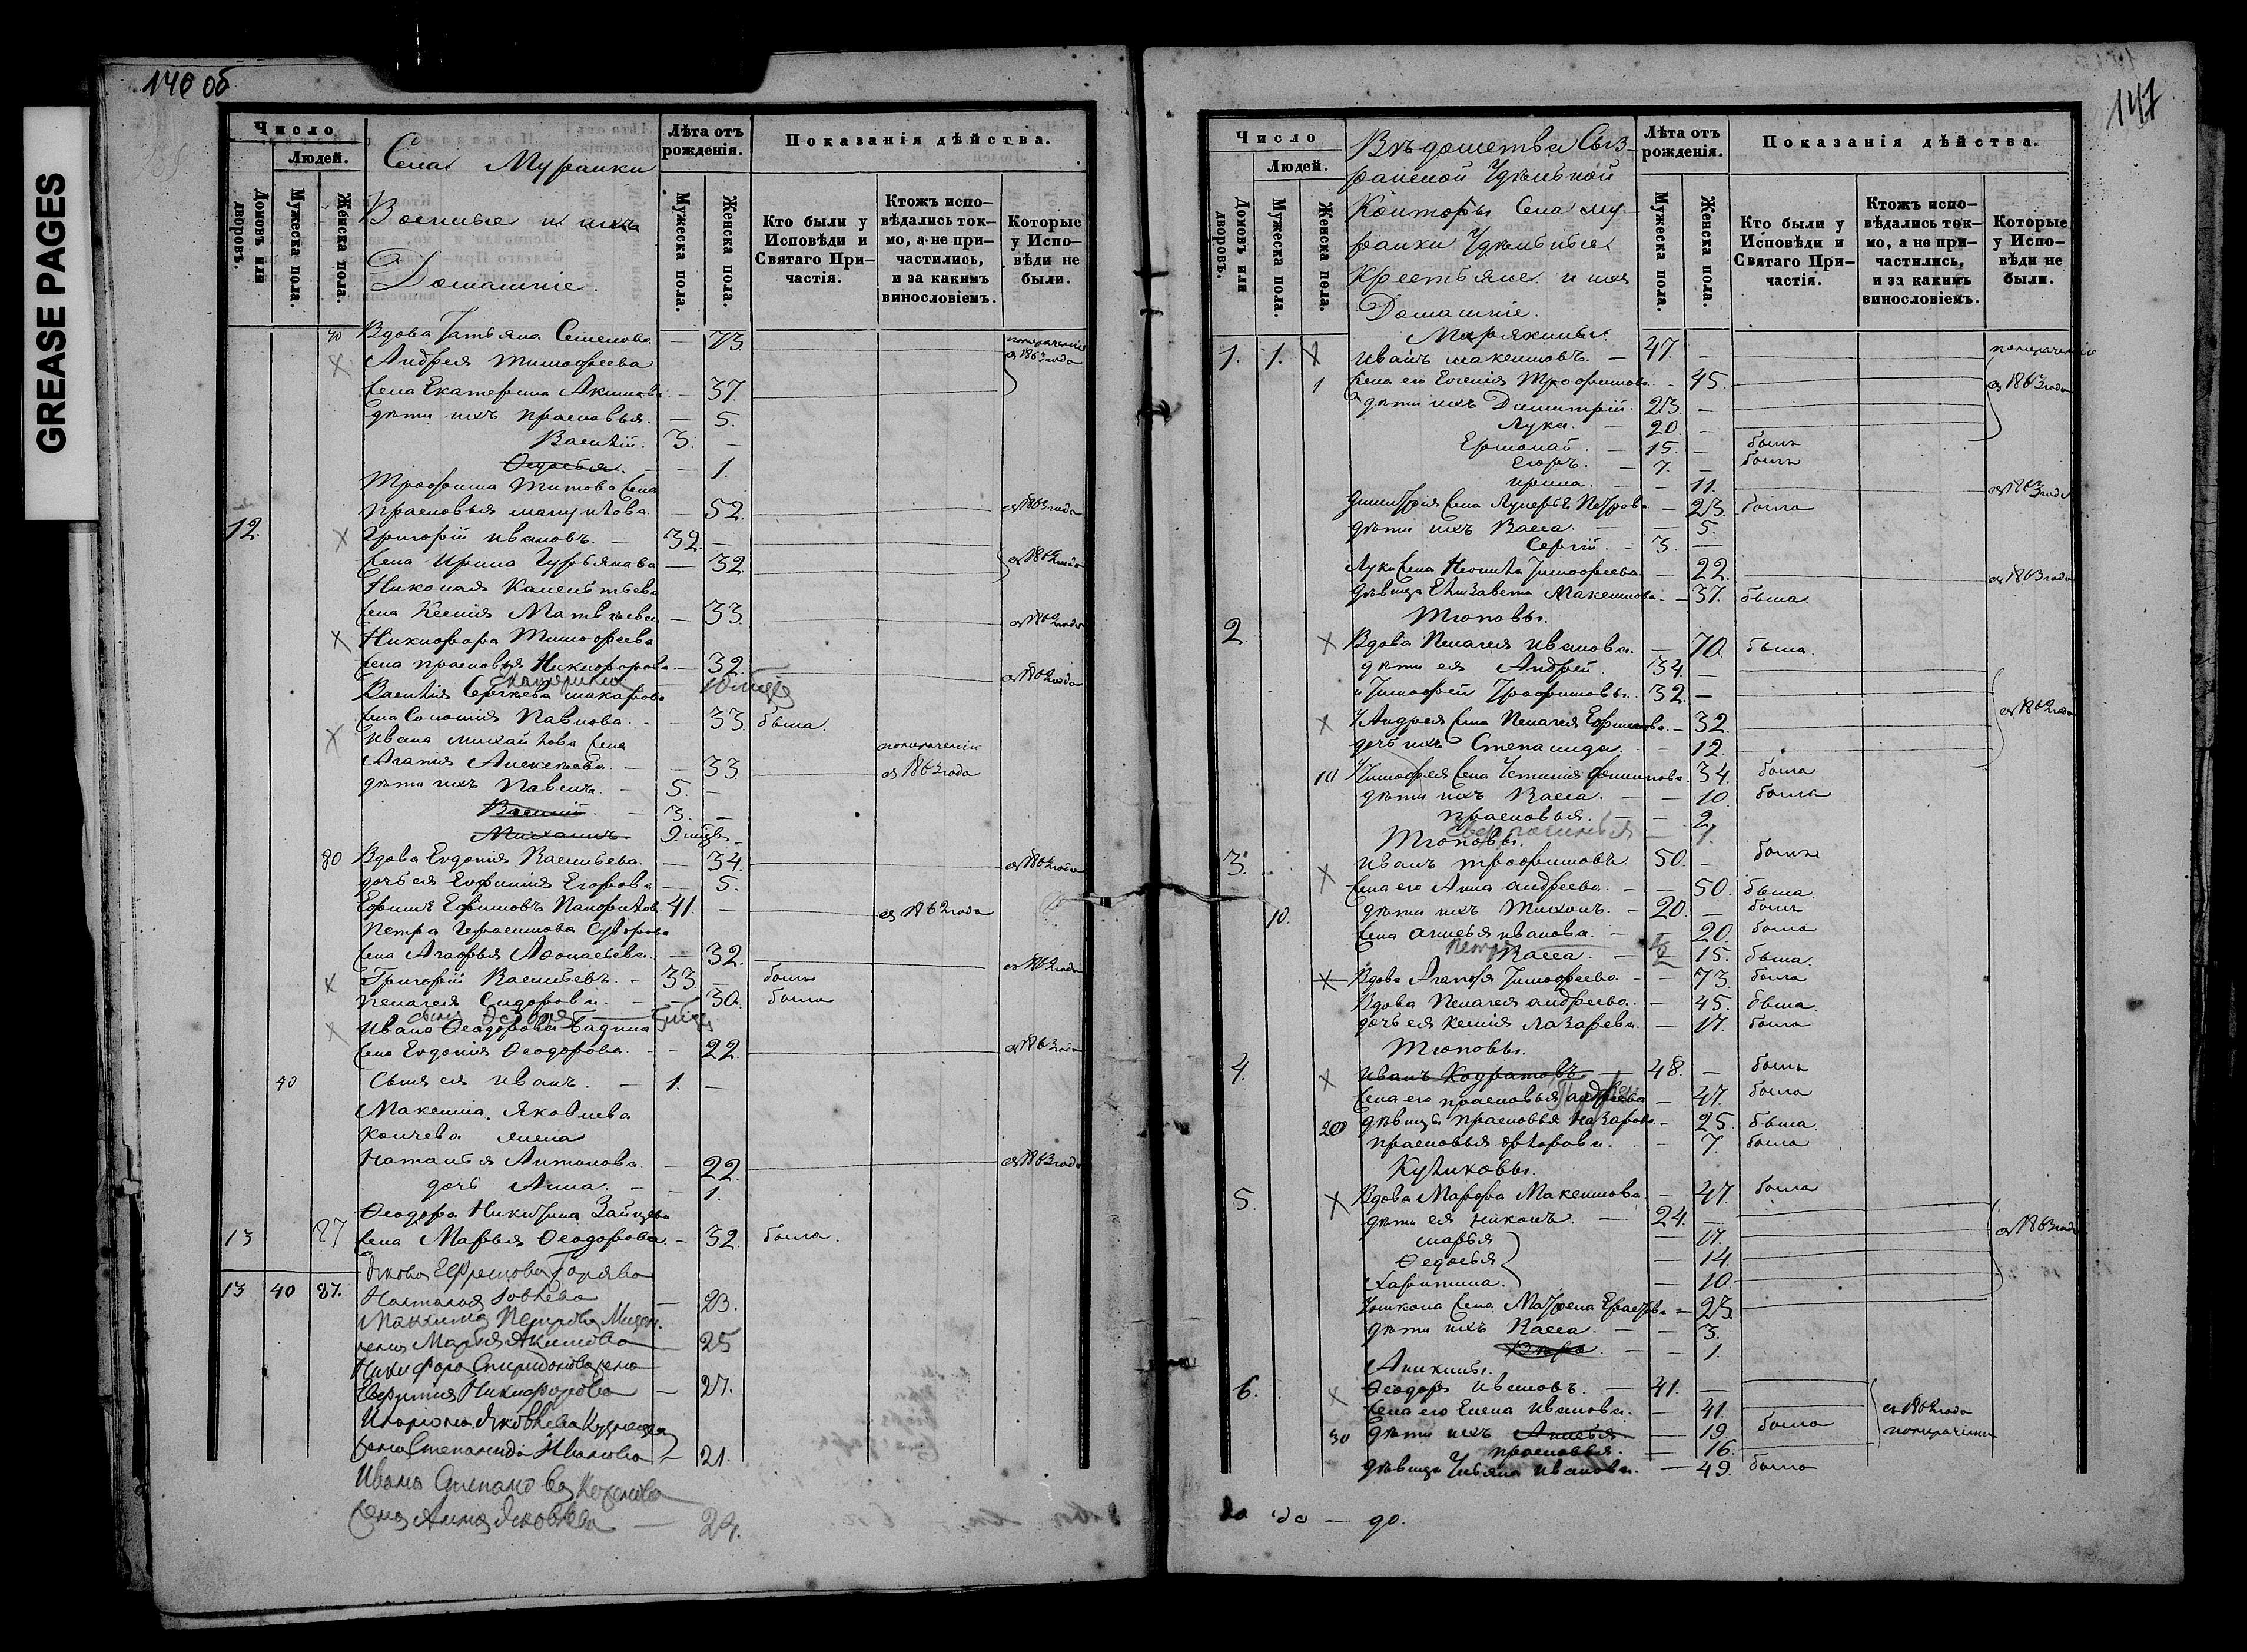 GREASE PAGES
146 об
Число
Людей.
Домовъ или дворовъ.
Мужеска пола.
Женска пола.
Села Муранки
Военные и ихъ
Домашніе.
Лѣта отъ рожденія.
Мужеска пола.
Женска пола.
Показанія дѣйства.
Кто были у Исповѣди и Святаго Причастія.
Ктожъ исповѣдались токмо, а не причастились, и за какимъ винословіемъ.
Которые у Исповѣди не были.
70 Вдова Татьяна Семенова — 73.
Андрея Тимофеева
жена Екатерина Акимова — 37. съ 1863 года
дѣти ихъ Прасковья — 5.
Василій. 3. —
Федосья. — 1.
Трофима Титова жена
Прасковья — 52. съ 1863 года
12. Григорій Ивановъ. — 32. —
жена Ирина — 32.
Николая
жена Ксенія Матвѣева — 33.
Никифора Тимофеева
жена Прасковья Никифорова — 32.
Екатерина
Василія Сергѣева Макарова
жена Соломія Павлова. — 33. была.
Ивана Михайлова жена
Агапія Алексѣева. — 33. съ 1863 года
дѣти ихъ Павелъ. — 5. —
Василій. 3. —
Михаилъ 9 мцев.
80 Вдова Евдокія Васильева. — 34.
дочь ея Евфимія Егорова — 5.
Ефимъ Ефимовъ 41. — съ 1862 года
Петра Герасимова Суворова
жена Агафья — 32.
Григорій Васильевъ. 33. — былъ
Пелагея Сидорова. — 30. была
Ивана Феодорова
жена Евдокія Феодорова. — 22. съ 1863 года
40 Сынъ ея Иванъ. — 1. —
Максима Яковлева
жена
Наталья Антонова. — 22. съ 1863 года
дочь Анна. — 1.
Феодора Никитина Зайцева
13 87 жена Марья Феодорова. — 32. была.
13 40 87. Якова Ефремова
Наталья — 23.
Максима Петрова
жена Марья Акимова — 25
Никифора Спиридонова жена
Евфимія Никифорова — 27.
Яковлева
жена Степанида Иванова — 21.
Ивана Степанова
жена Анна Яковлева — 24.
147
Число
Людей.
Домовъ или дворовъ.
Мужеска пола.
Женска пола.
Вѣдомства Сыз-
ранской Удѣльной
Конторы Села Му-
ранки Удѣльные
Крестьяне и ихъ
Домашніе.
Лѣта отъ рожденія.
Мужеска пола.
Женска пола.
Показанія дѣйства.
Кто были у Исповѣди и Святаго Причастія.
Ктожъ исповѣдались токмо, а не причастились, и за какимъ винословіемъ.
Которые у Исповѣди не были.
1. 1. Иванъ Максимовъ. — 47. —
1 жена его Евгенія Трофимова. — 45. съ 1863 года
дѣти ихъ Димитрій. 23. —
Лука. — 20. —
Ермолай. — 15. — былъ
Егоръ. — 7. — былъ
Ирина. — 11.
Димитрія жена Лукерья Петрова — 23. была
дѣти ихъ Васса. — 5.
Сергій. — 3. —
Луки жена Неонила Тимофеева — 22. съ 1863 года
дѣвица Елизавета Максимова. — 37. была.
Тюповы.
2. Вдова Пелагея Иванова. — 70. была.
дѣти ея Андрей. 34. —
и Тимофей Трофимовы. 32. —
У Андрея жена Пелагея Ефимова. — 32. съ 1862 года
дочь ихъ Степанида. — 12.
10 У Тимофея жена Устинія Филипова. 34. была
дѣти ихъ Васса. — 10. была
Прасковья. — 2.
Тюповы.
3. Иванъ Трофимовъ 50. — былъ
жена его Анна Андреева. — 50. была.
10. дѣти ихъ Тихонъ. — 20. — былъ
жена Анисья Иванова. — 20. была
Васса. — 15. была.
Вдова Агафья Тимофеева. — 73. была.
Вдова Пелагея Андреева. — 45. была.
дочь ея Ксенія Лазарева. — 17. была
Тюповы.
4. Иванъ Кодратовъ — 48. — былъ
жена его Прасковья Андреева — 47. была
20 дѣвицы Прасковья Назарова. — 25. была.
Прасковья — 7. была
Куликовы.
5. Вдова Марфа Максимова. — 47. была
дѣти ея Никонъ. — 24. —
Марья — 17. съ 1863 года
Федосья — 14.
Харитина. — 10.
У Никона жена Матрена — 23.
дѣти ихъ Васса. — 3.
— 1.
Аникины.
6. Феодоръ Ивановъ. — 41. —
жена его Елена Иванова. — 41. съ 1862 года
30 дѣти ихъ Анисья — 19. была
Прасковья. — 16.
дѣвица Ульяна Иванова. — 49. была